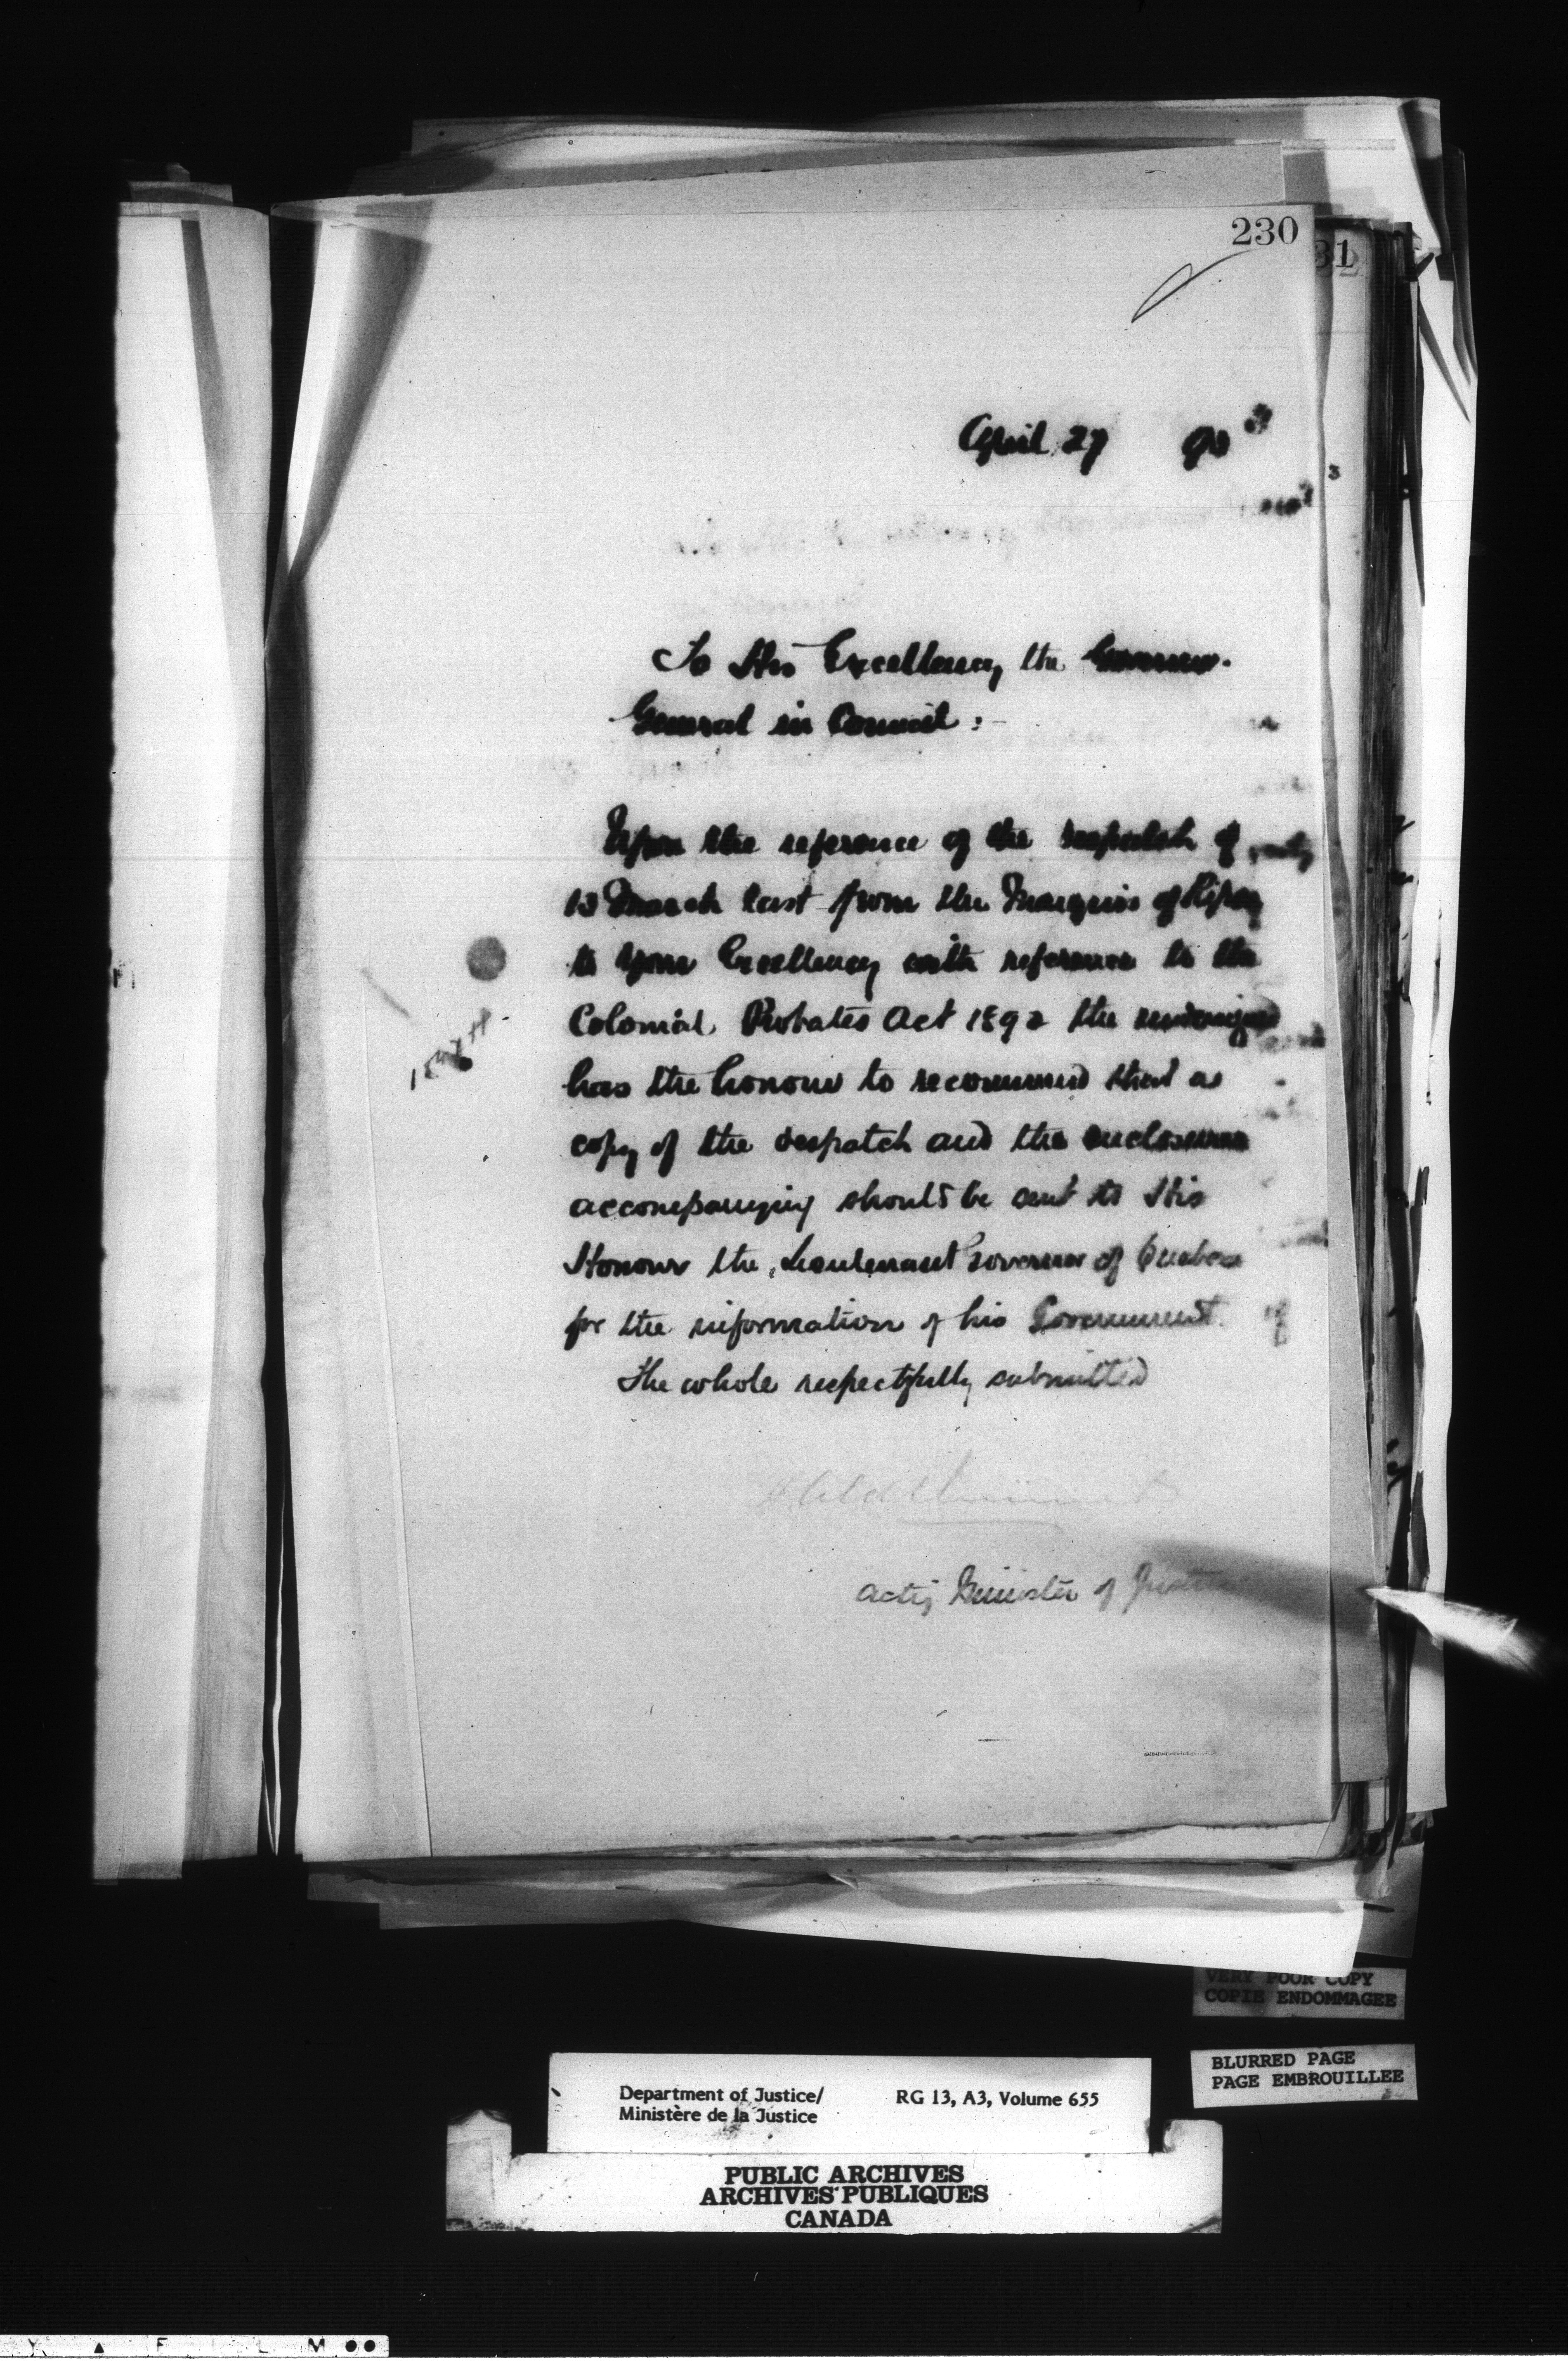 230
31
April 27 93
To His Excellency the Governor-
General in Council :-
Upon the reference of the despatch of
13 March last from the Marquis of Ripon
to Your Excellency with reference to the
Colonial Probates Act 1892 the undersigned
has the honour to recommend that a
copy of the despatch and the enclosures
accompanying should be sent to His
Honour the Lieutenant Governor of Quebec
for the information of his Government.
The whole respectfully submitted
Actg Minister of Justice
VERY POOR COPY
COPIE ENDOMMAGEE
BLURRED PAGE
PAGE EMBROUILLEE
Department of Justice/ RG 13, A3, Volume 655
Ministère de la Justice
PUBLIC ARCHIVES
ARCHIVES PUBLIQUES
CANADA